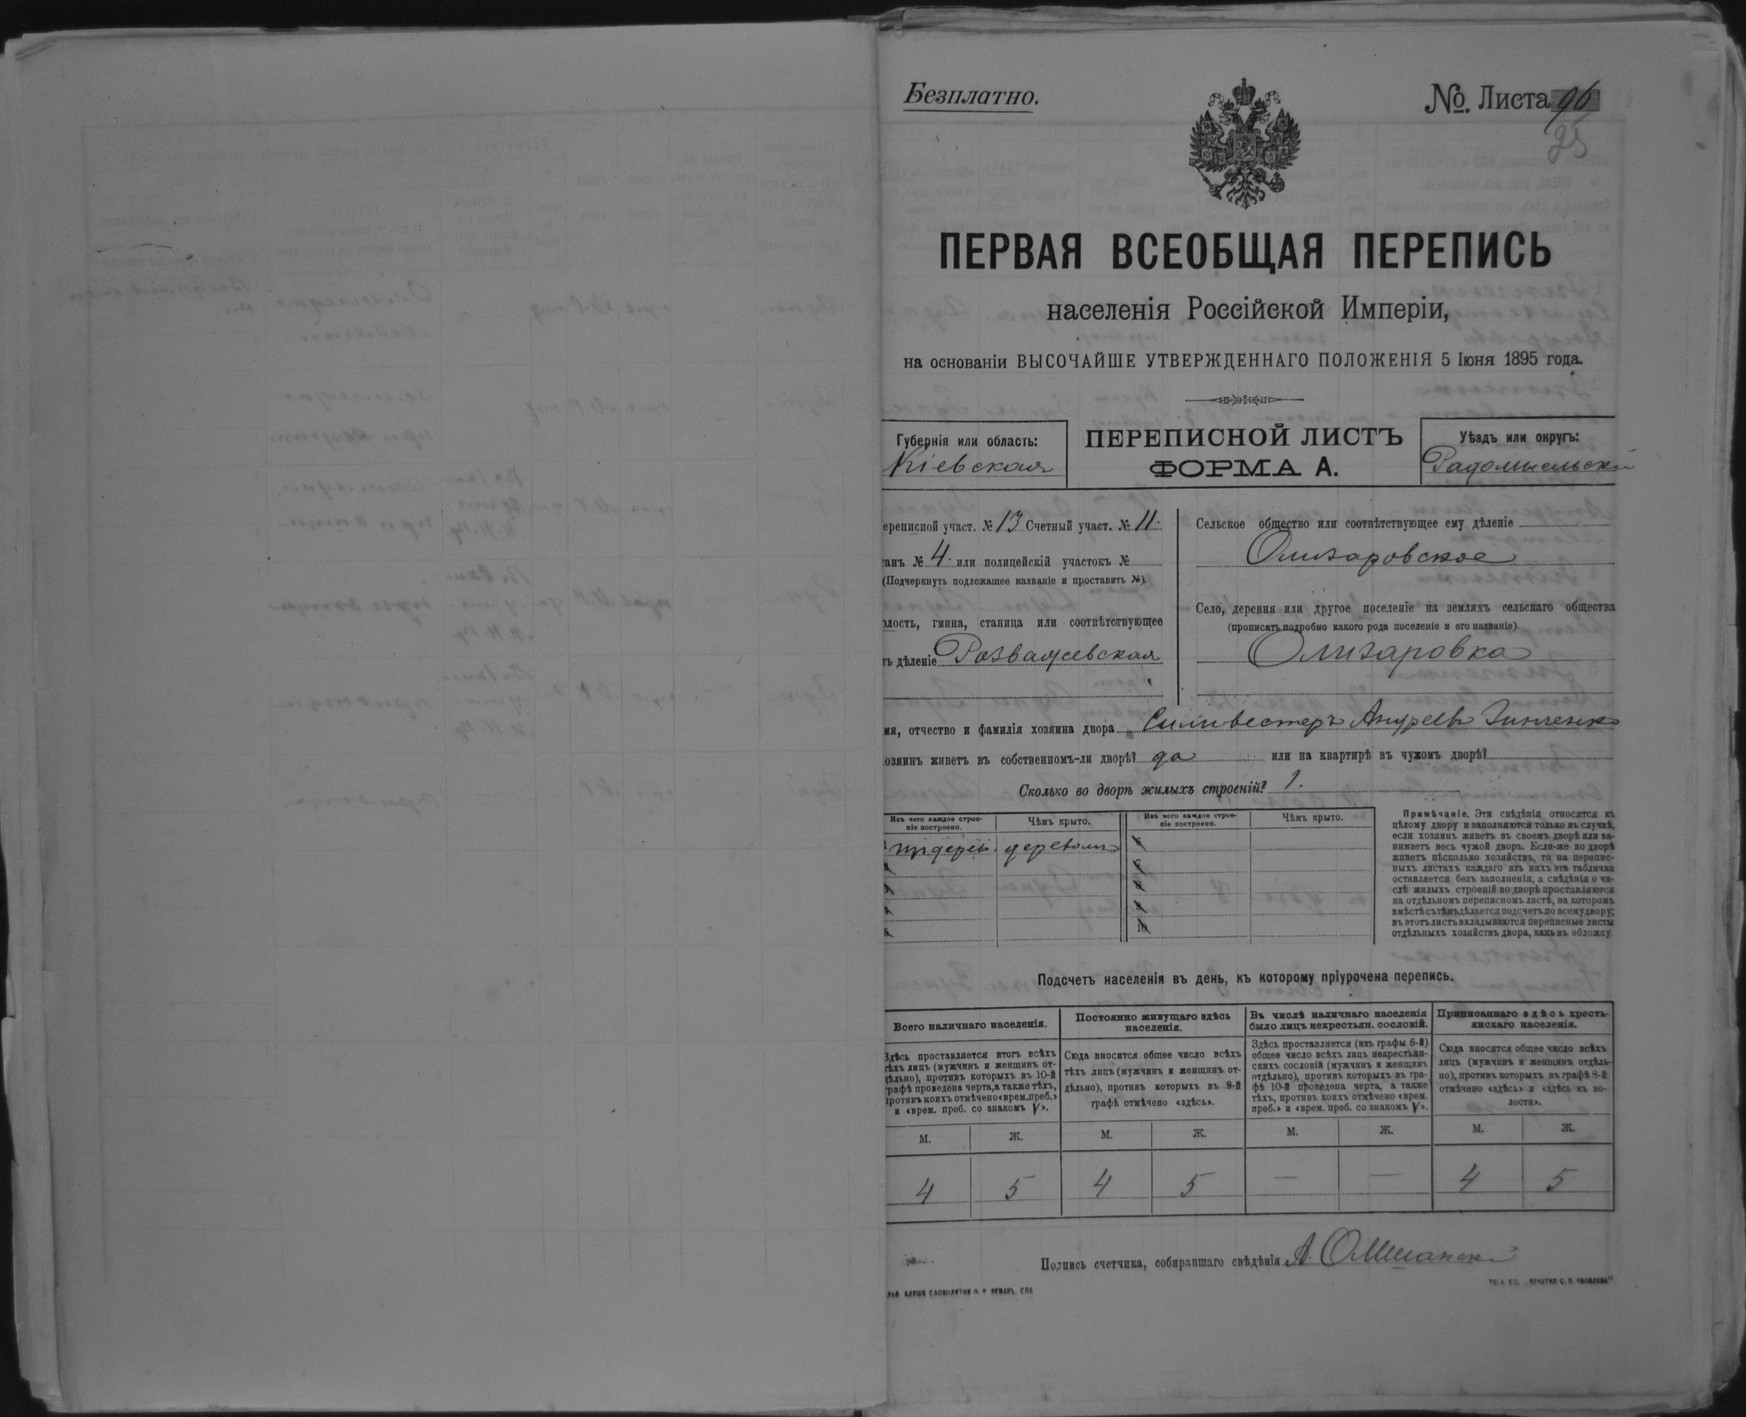 Безплатно.
№. Листа 96
25
ПЕРВАЯ ВСЕОБЩАЯ ПЕРЕПИСЬ
населенія Россійской Имперіи,
на основаніи ВЫСОЧАЙШЕ УТВЕРЖДЕННАГО ПОЛОЖЕНІЯ 5 Іюня 1895 года.
Губернія или область:
Кіевская
ПЕРЕПИСНОЙ ЛИСТЪ
ФОРМА А.
Уѣздъ или округъ:
Радомысльскі
ереписной участ. № 13 Счетный участ. № 11.
танъ № 4. или полицейскій участокъ №
(Подчеркнуть подлежащее названіе и проставить №).
олость, гмина, станица или соотвѣтствующее
ъ дѣленіе Розважевская
Сельское общество или соотвѣтствующее ему дѣленіе
Олизаровское
Село, деревня или другое поселеніе на земляхъ сельскаго общества
(прописать подробно какого рода поселеніе и его названіе).
Олизаровка
мя, отчество и фамилія хозяина двора Силивестеръ Андреевъ Зинченко
озяинъ живетъ въ собственномъ-ли дворѣ? да или на квартирѣ въ чужомъ дворѣ?
Сколько во дворѣ жилыхъ строеній? 1.
Изъ чего каждое строе-
ніе построено.
Чѣмъ крыто.
Изъ чего каждое строе-
ніе построено.
Чѣмъ крыто.
деревом
10
Примѣчаніе. Эти свѣдѣнія относятся къ
цѣлому двору и заполняются только въ случаѣ,
если хозяинъ живетъ въ своемъ дворѣ или за-
нимаетъ весь чужой дворъ. Если-же во дворѣ
живетъ нѣсколько хозяйствъ, то на перепис-
ныхъ листахъ каждаго изъ нихъ эта табличка
оставляется безъ заполненія, а свѣдѣнія о чи-
слѣ жилыхъ строеній во дворѣ проставляются
на отдѣльномъ переписномъ листѣ, на которомъ
вмѣстѣ съ тѣмъ дѣлается подсчетъ по всему двору;
въ этотъ листъ вкладываются переписные листы
отдѣльныхъ хозяйствъ двора, какъ въ обложку.
Подсчетъ населенія въ день, къ которому пріурочена перепись.
Всего наличнаго населенія.
Здѣсь проставляется итогъ всѣхъ
тѣхъ лицъ (мужчинъ и женщинъ от-
дѣльно), противъ которыхъ въ 10-й
графѣ проведена черта, а также тѣхъ,
противъ коихъ отмѣчено «врем. преб.»
и «врем. преб. со знакомъ V».
Постоянно живущаго здѣсь
населенія.
Сюда вносится общее число всѣхъ
тѣхъ лицъ (мужчинъ и женщинъ от-
дѣльно), противъ которыхъ въ 9-й
графѣ отмѣчено «здѣсь».
Въ числѣ наличнаго населенія
было лицъ некрестьян. сословій.
Здѣсь проставляется (изъ графы 6-й)
общее число всѣхъ лицъ некрестьян-
скихъ сословій (мужчинъ и женщинъ
отдѣльно), противъ которыхъ въ гра-
фѣ 10-й проведена черта, а также
тѣхъ, противъ коихъ отмѣчено «врем.
преб.» и «врем. преб. со знакомъ V».
Приписаннаго здѣсь кресть-
янскаго населенія.
Сюда вносится общее число всѣхъ
лицъ (мужчинъ и женщинъ отдѣль-
но), противъ которыхъ въ графѣ 8-й
отмѣчено «здѣсь» и «здѣсь въ во-
лости».
М. Ж. М. Ж. М. Ж. М. Ж.
4 5 4 5 — — 4 5
Подпись счетчика, собиравшаго свѣдѣнія А. Олшанск